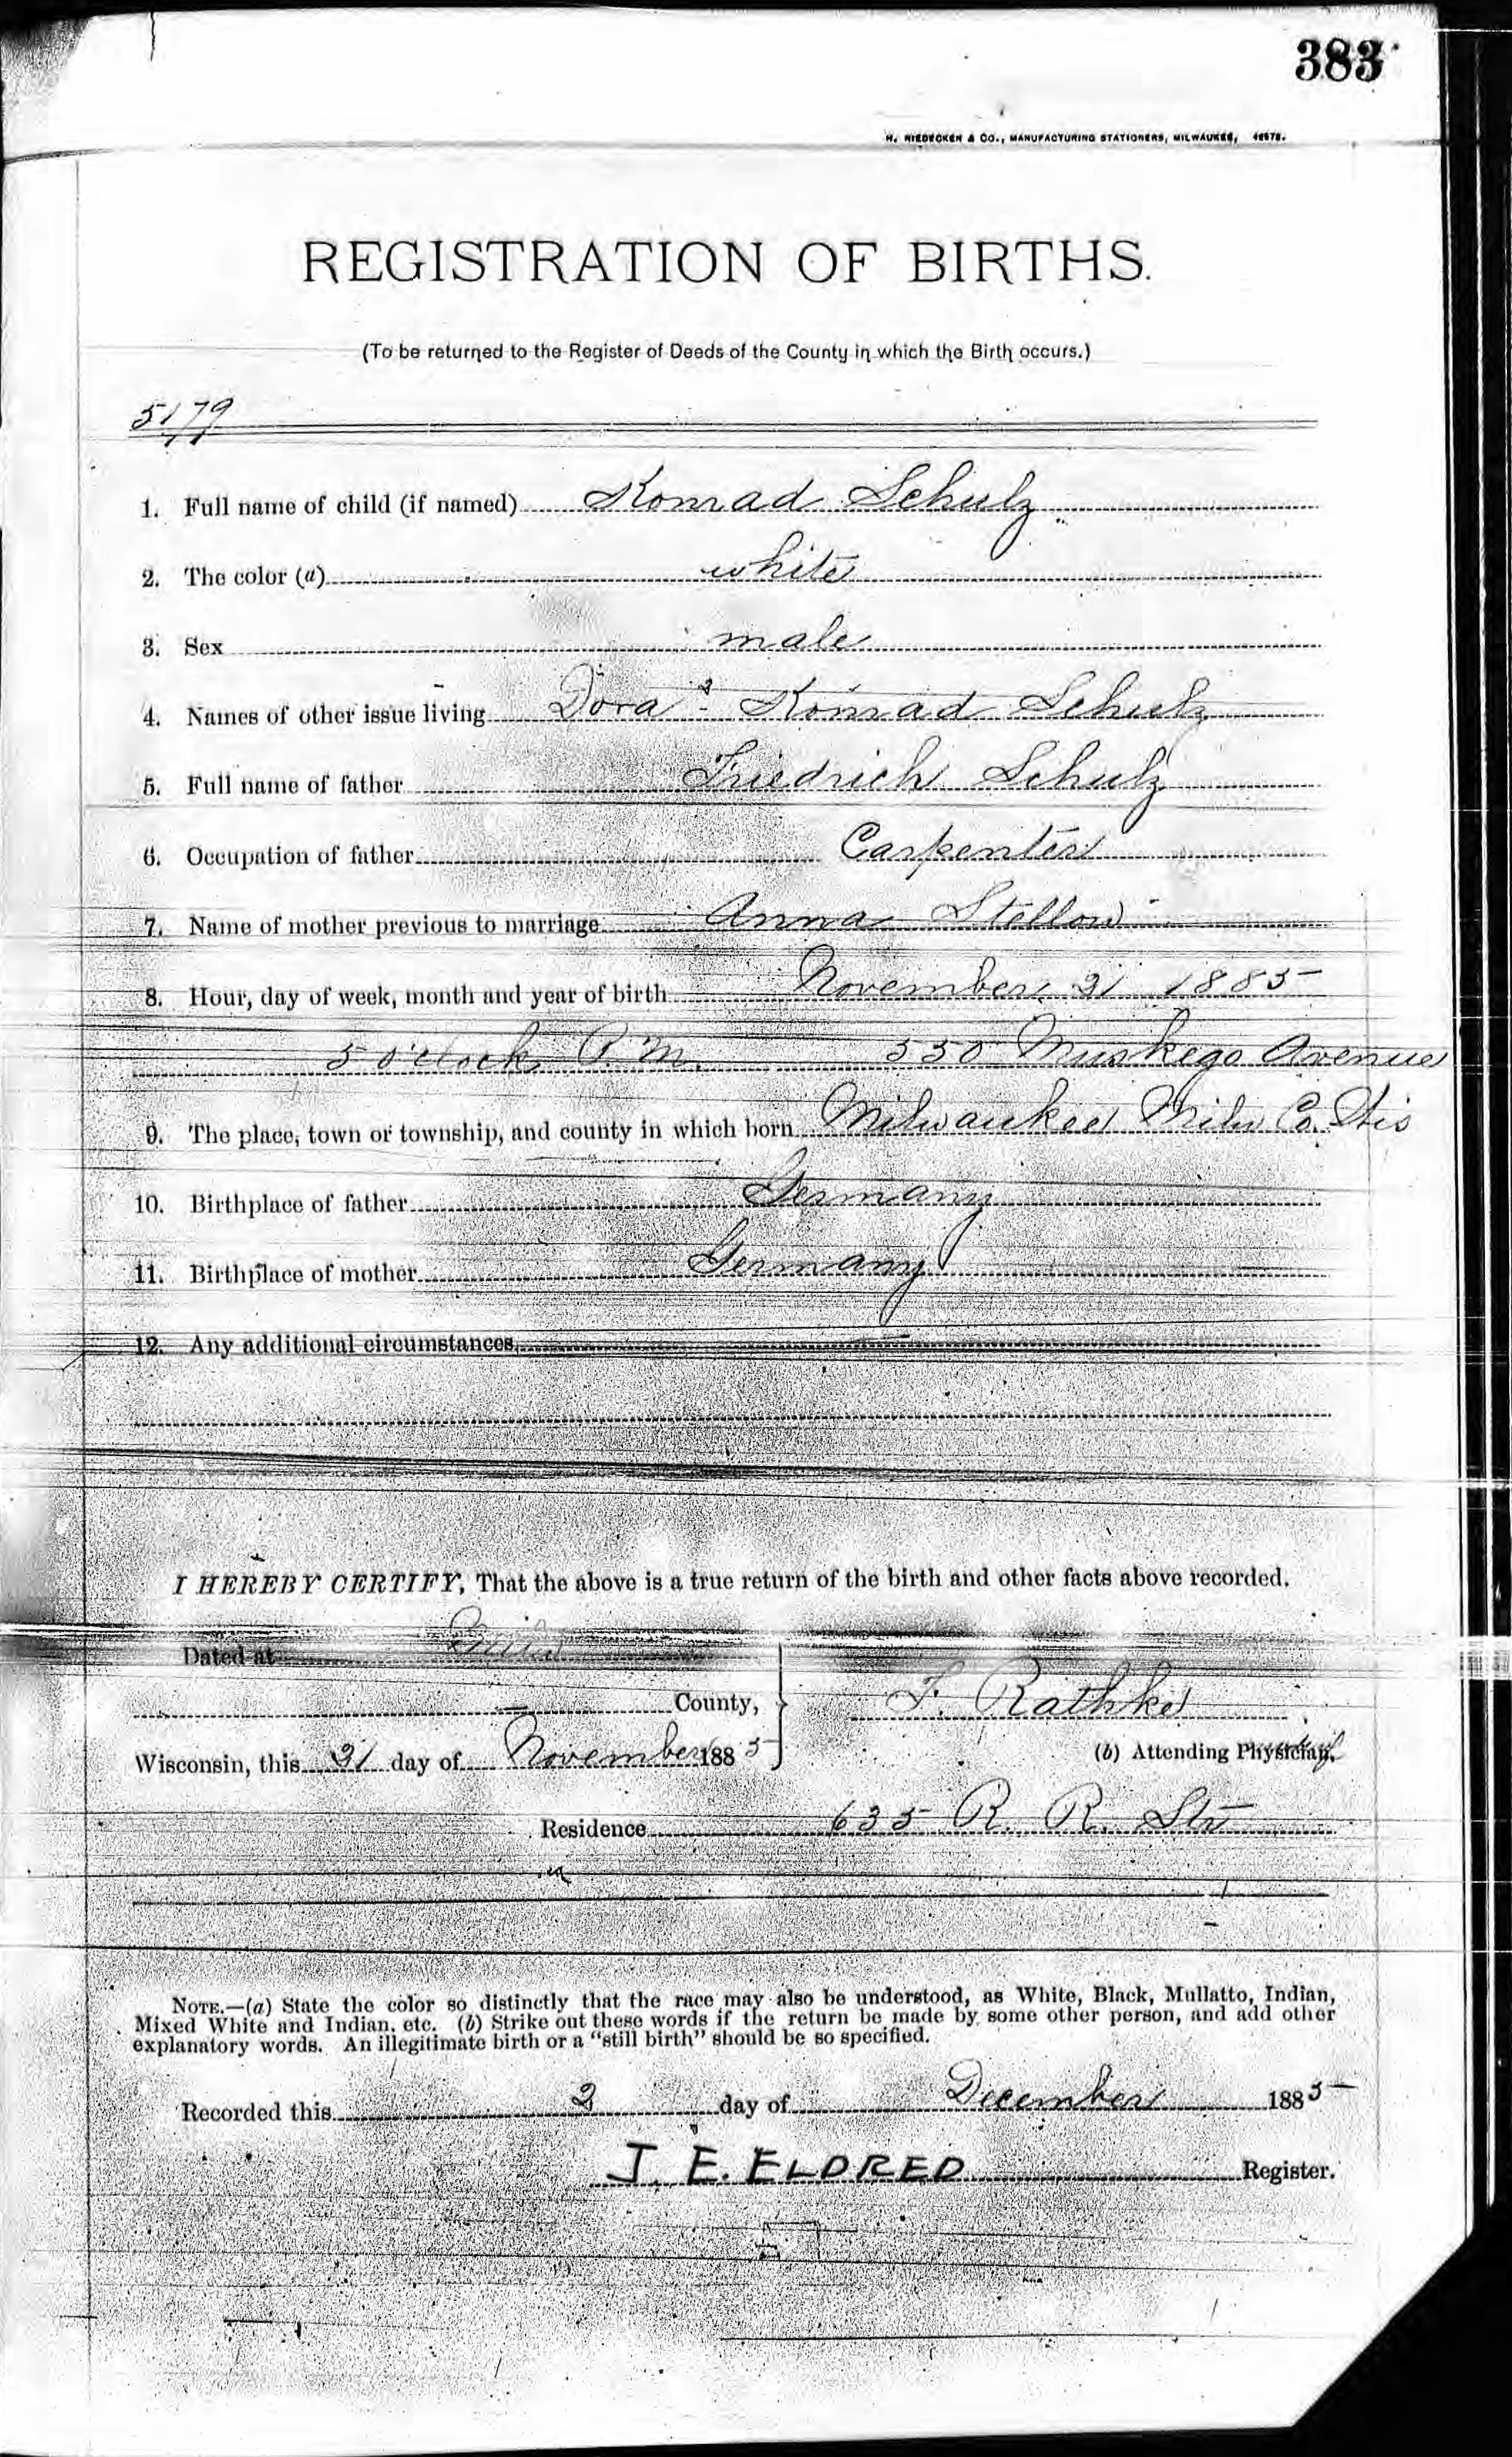 383
H. NIEDECKEN & CO., MANUFACTURING STATIONERS, MILWAUKEE,
REGISTRATION OF BIRTHS.
(To be returned to the Register of Deeds of the County in which the Birth occurs.)
5179
1. Full name of child (if named) Konrad Schulz
2. The color (a) white
3. Sex male
4. Names of other issue living Dora & Konrad Schulz
5. Full name of father Friedrich Schulz
6. Occupation of father Carpenter
7. Name of mother previous to marriage Anna Stellow
8. Hour, day of week, month and year of birth November 21 1885
5 o'clock P.M. 550 Muskego Avenue
9. The place, town or township, and county in which born Milwaukee Milw Co. Wis
10. Birthplace of father Germany
11. Birthplace of mother Germany
12. Any additional circumstances
I HEREBY CERTIFY, That the above is a true return of the birth and other facts above recorded.
Dated at
County, F. Rathke
Wisconsin, this 21 day of November 1885
(b) Attending Physician.
Residence 635 R. R. Str
NOTE.—(a) State the color so distinctly that the race may also be understood, as White, Black, Mullatto, Indian,
Mixed White and Indian, etc. (b) Strike out these words if the return be made by some other person, and add other
explanatory words. An illegitimate birth or a "still birth" should be so specified.
Recorded this 2 day of December 1885
J. E. ELDRED Register.